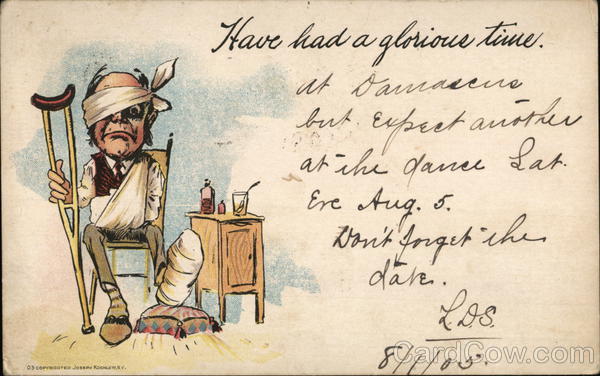 Have had a glorious time.
at Damascus
but expect another
at the dance Sat.
Eve Aug. 5.
Don't forget the
date.
L.D.S.
8/1/05.
03 COPYRIGHTED JOSEPH KOEHLER, N.Y.
CardCow.com